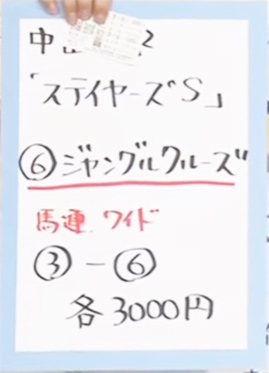 中 2
「ステイヤーズS」
⑥ジャングルクルーズ
馬連 ワイド
③-⑥
各3000円